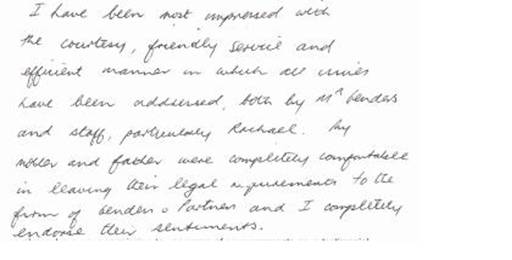 I have been most impressed with
the courtesy, friendly service and
efficient manner in which all issues
have been addressed, both by Mr Benders
and staff, particularly Rachael. My
mother and father were completely comfortable
in leaving their legal requirements to the
firm of Benders & Partners and I completely
endorse their sentiments.